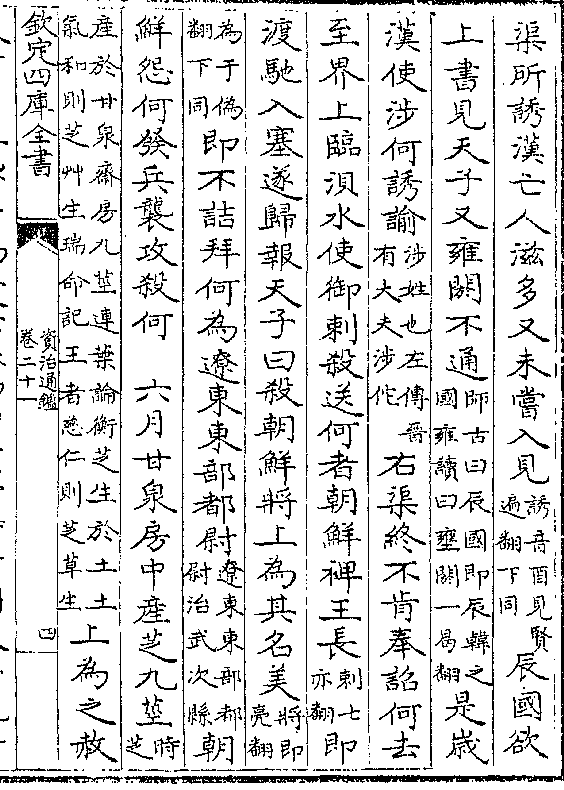 渠所誘漢亡人滋多又未嘗入見誘音酉見賢遍翻下同辰國欲
上書見天子又雍閼不通師古曰辰國即辰韓之國雍讀曰壅閼一曷翻是歲
漢使涉何誘諭涉姓也左傳晉有大夫涉佗右渠終不肯奉詔何去
至界上臨浿水使御刺殺送何者朝鮮裨王長刺七亦翻即
渡馳入塞遂歸報天子曰殺朝鮮將上為其名美將即亮翻
為于偽翻下同即不詰拜何為遼東東部都尉遼東東部都尉治武次縣朝
鮮怨何發兵襲攻殺何 六月甘泉房中產芝九莖時芝
產於甘泉齋房九莖連葉論衡芝生於土土氣和則芝艸生瑞命記王者慈仁則芝草生上為之赦
欽定四庫全書
資治通鑑
卷二十一
四